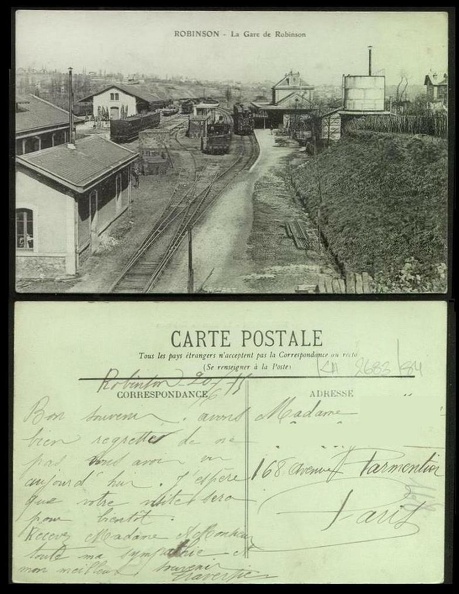 ROBINSON - La Gare de Robinson
CARTE POSTALE
Tous les pays étrangers n'acceptent pas la Correspondance au recto
(Se renseigner à la Poste)
Robinson
CORRESPONDANCE
Bon souvenir. avons
bien regretté de ne
pas vous avoir vu
aujourd'hui. J'espère
que votre visite sera
pour bientôt.
Recevez Madame
toute ma sympathie et
mon meilleur souvenir
ADRESSE
Madame
168 avenue Parmentier
Paris